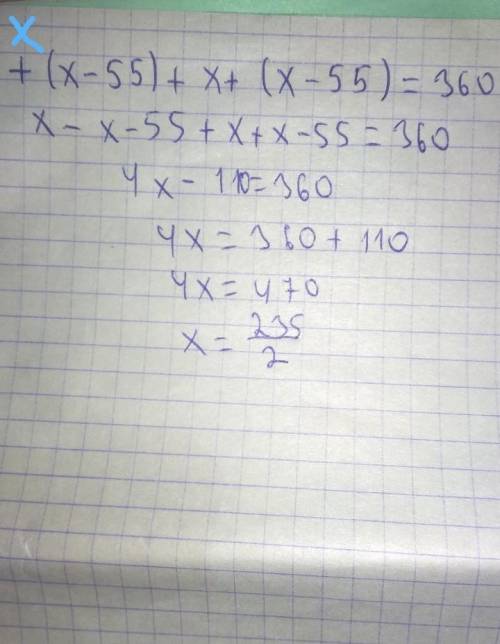 x
+ (x-55) + x + (x-55) = 360
x - x - 55 + x + x - 55 = 360
4x - 110 = 360
4x = 360 + 110
4x = 470
x = 235/2